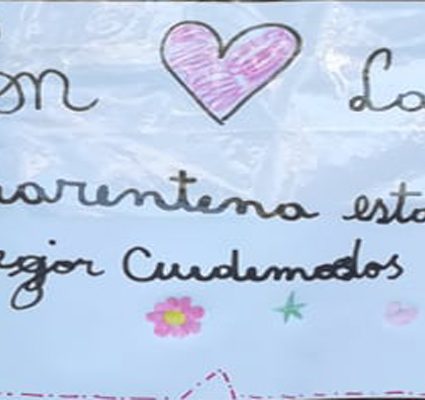 on La
uarentena esta
ejor Cuidemonos